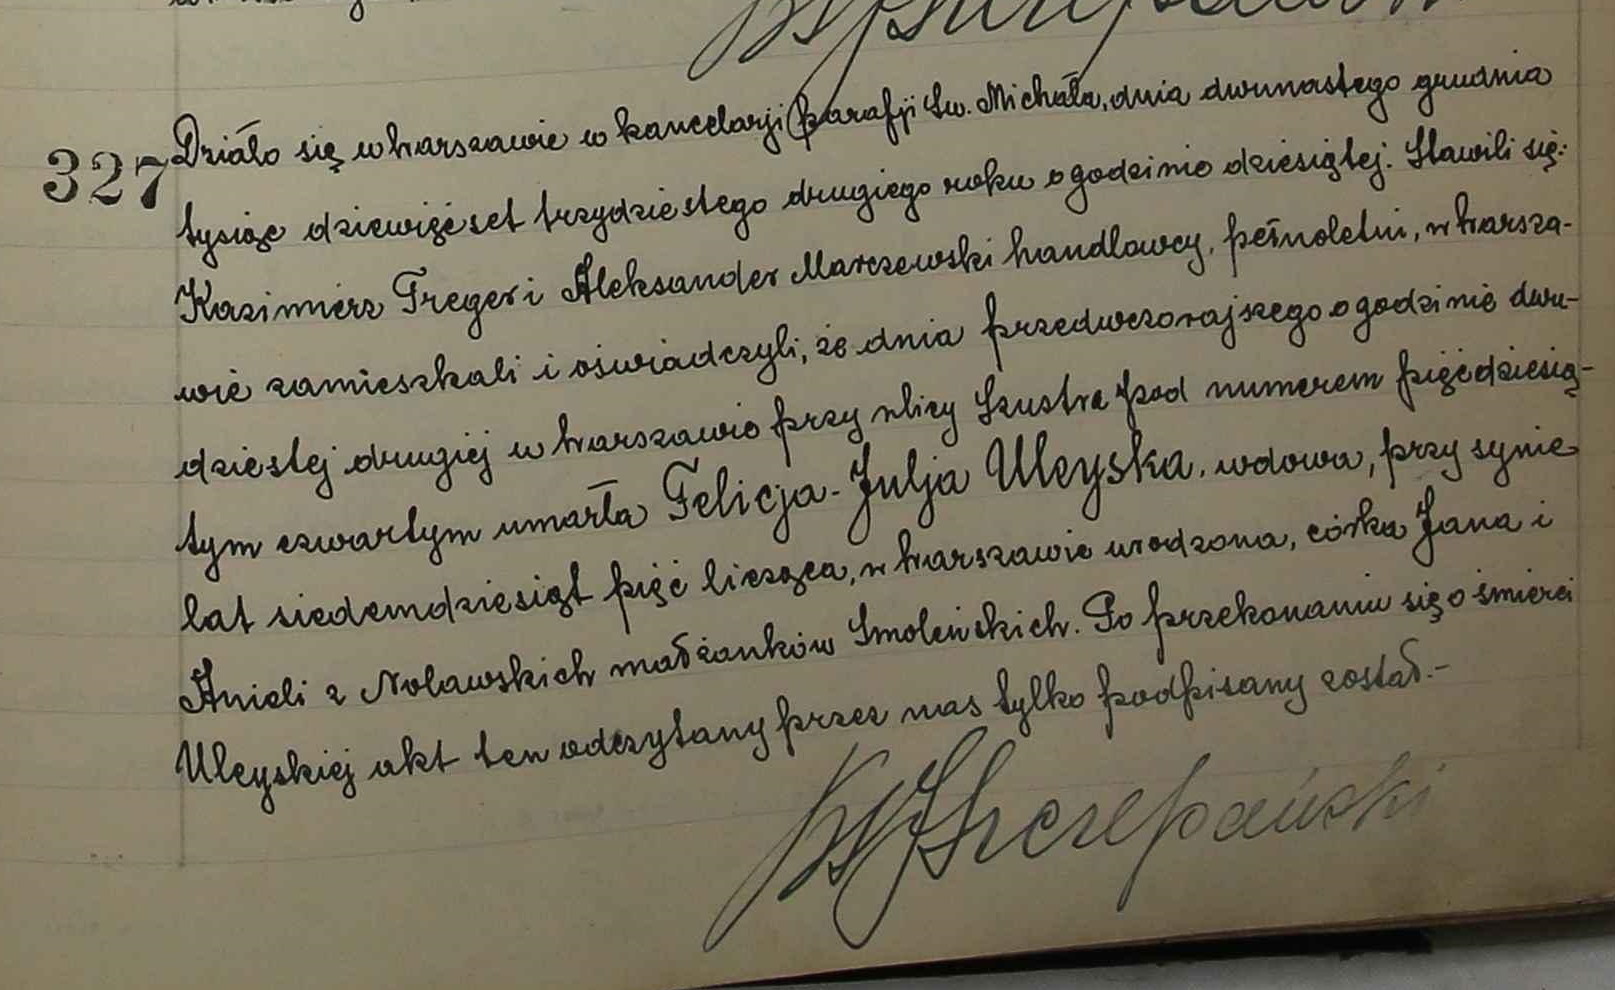 327 Działo się w Warszawie w kancelarji parafji Św. Michała, dnia dwunastego grudnia
tysiąc dziewięćset trzydziestego drugiego roku o godzinie dziesiątej. Stawili się:
Kazimierz Treger i Aleksander Marczewski handlowcy, pełnoletni, w Warsza-
wie zamieszkali i oświadczyli, że dnia przedwczorajszego o godzinie dwu-
dziestej drugiej w Warszawie przy ulicy Szustra pod numerem pięćdziesią-
tym czwartym umarła Felicja-Julja Uleyska, wdowa, przy synie
lat siedemdziesiąt pięć licząca, w Warszawie urodzona, córka Jana i
Anieli z Nolawskich małżonków Smoleńskich. Po przekonaniu się o śmierci
Uleyskiej akt ten odczytany przez nas tylko podpisany został.-
Szczepański